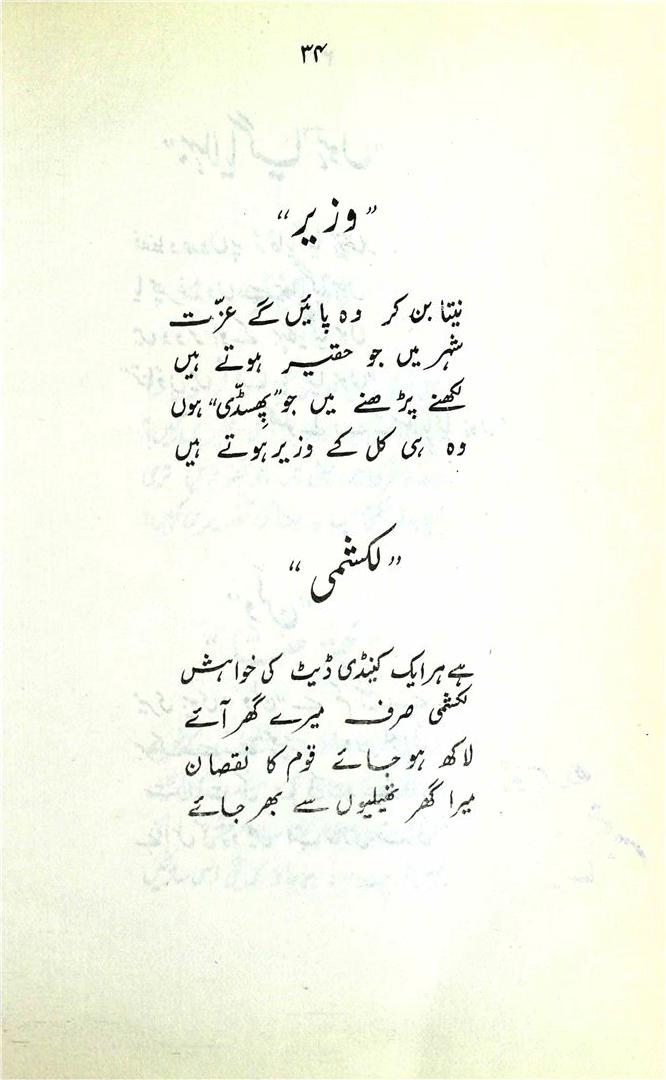 ۳۴
"وزیر"
نیتا بن کر وہ پائیں گے عزّت
شہر میں جو حقیر ہوتے ہیں
لکھنے پڑھنے میں جو "پھِسڈّی" ہوں
وہ ہی کل کے وزیر ہوتے ہیں
"لکشمی"
ہے ہر ایک کینڈی ڈیٹ کی خواہش
لکشمی صرف میرے گھر آئے
لاکھ ہو جائے قوم کا نقصان
میرا گھر تھیلیوں سے بھر جائے